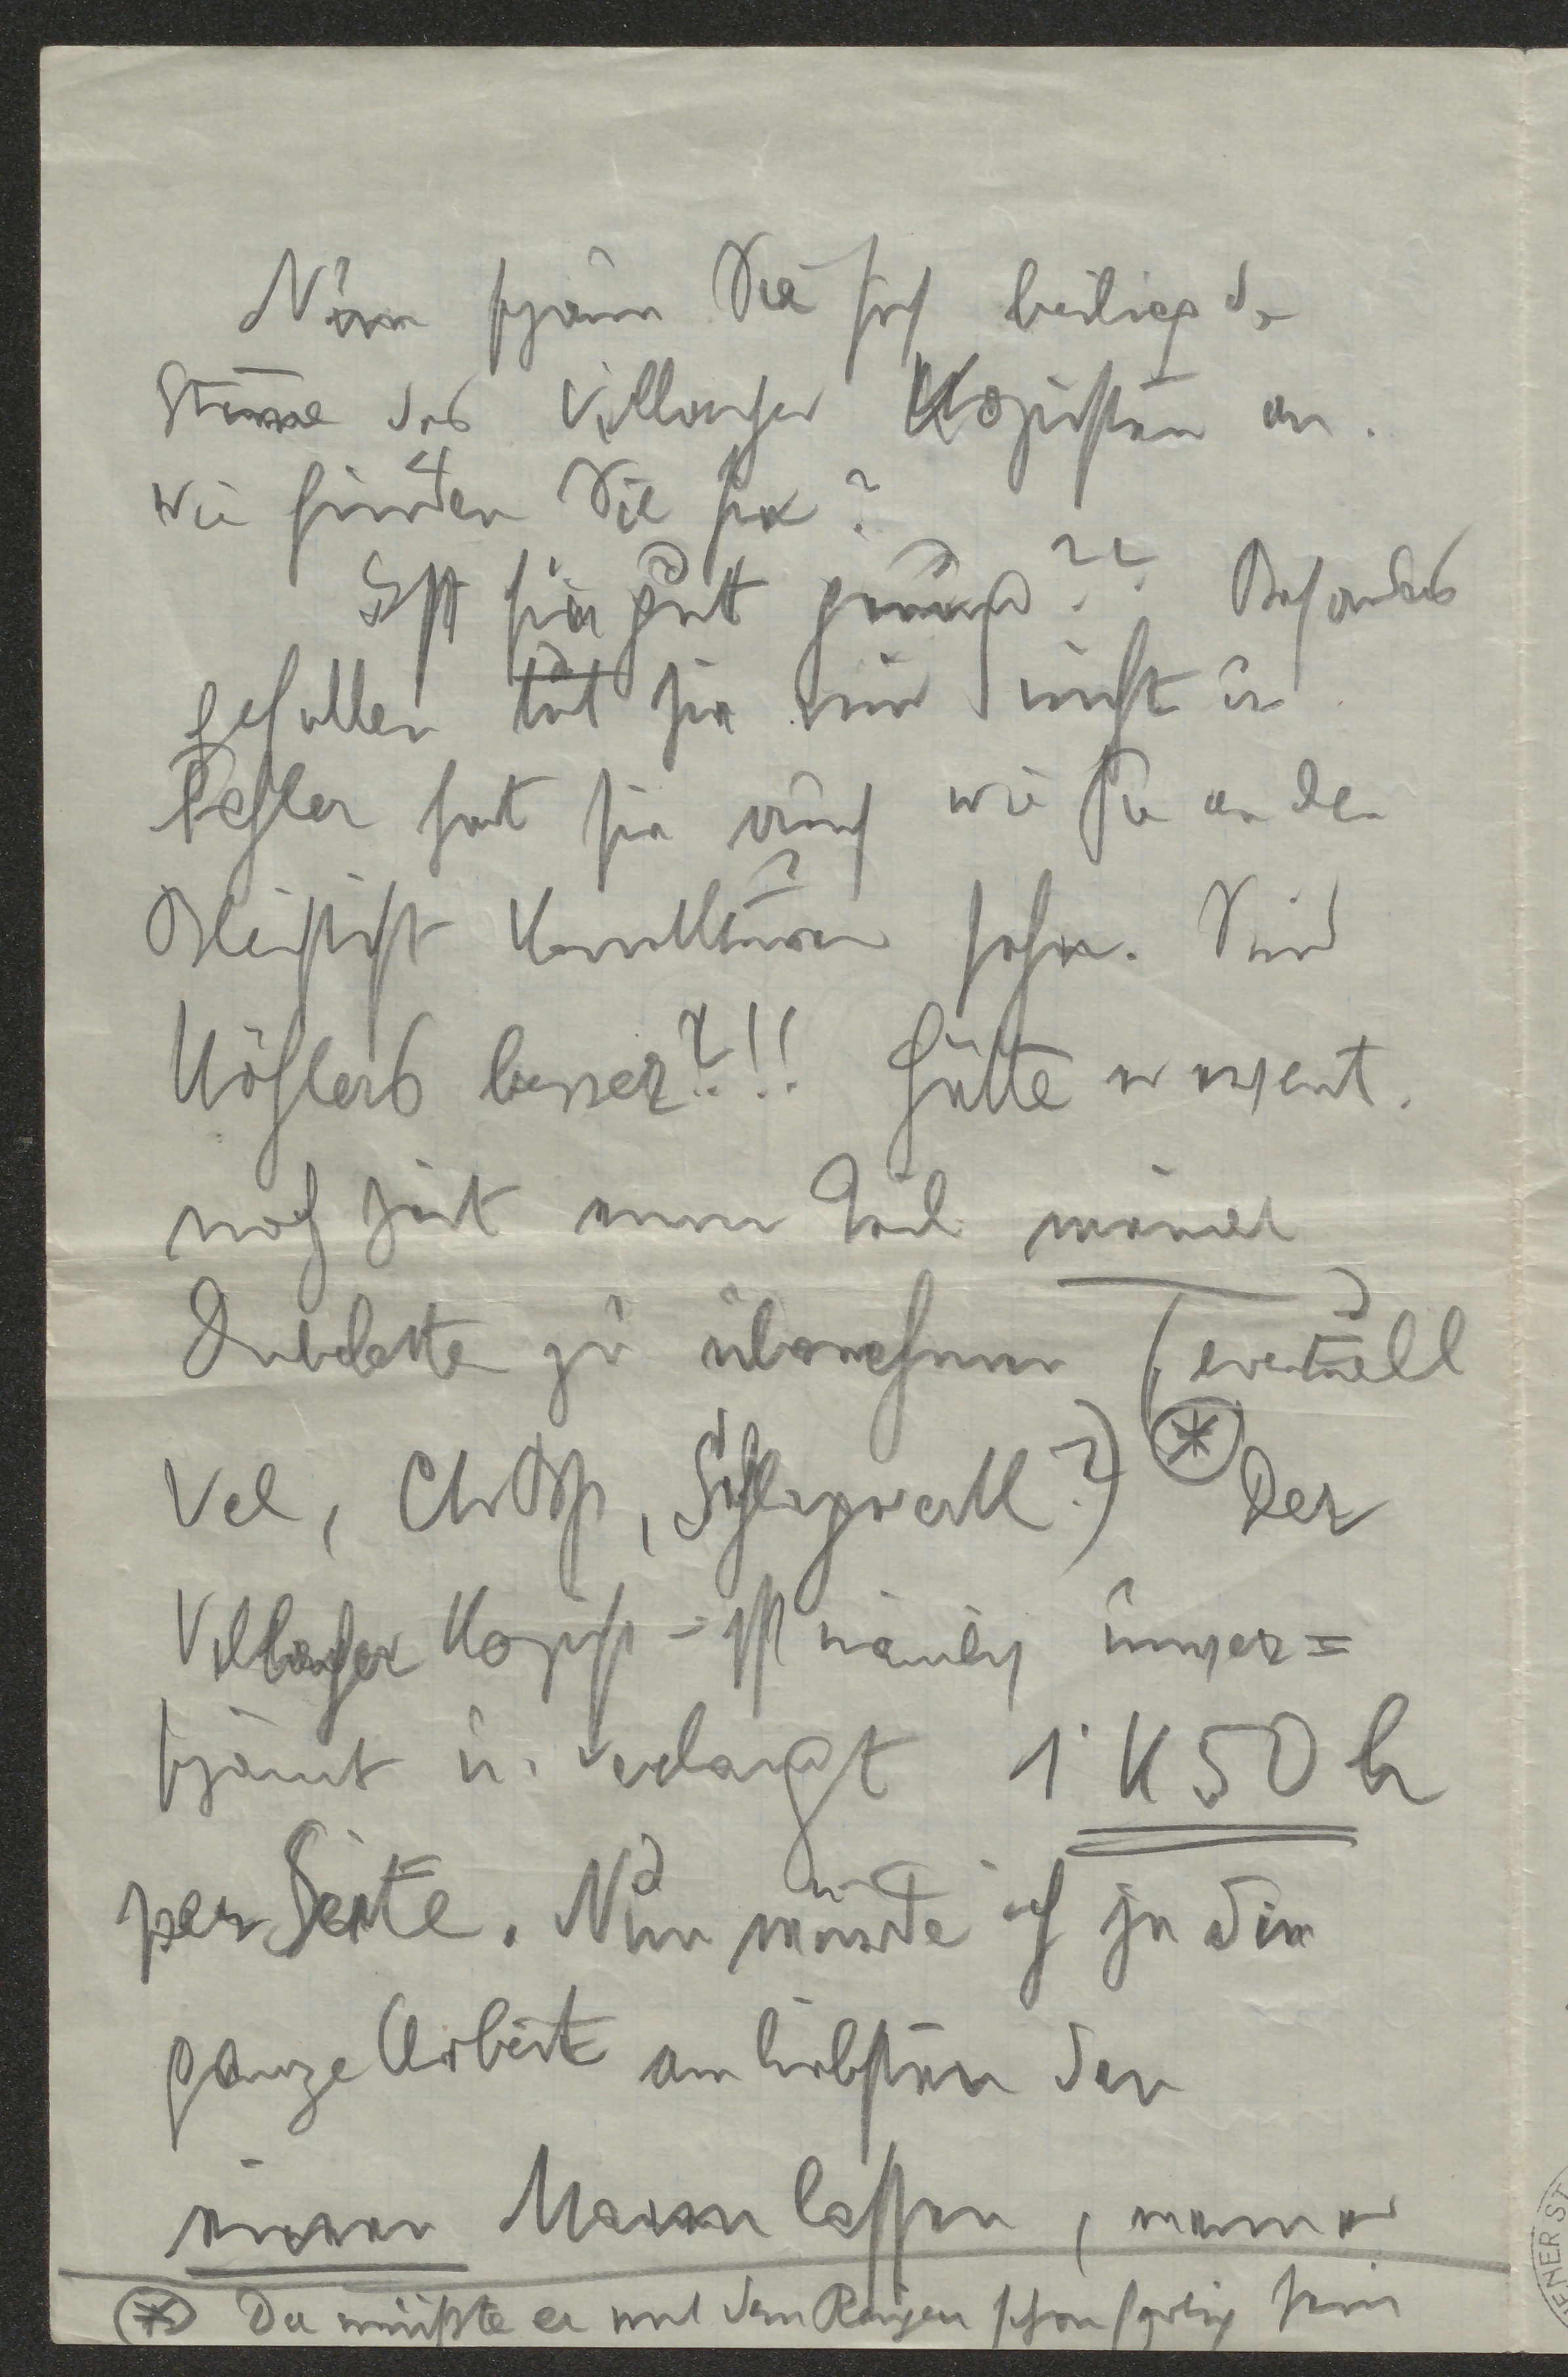 Nun schaun Sie sich beiliegde
Stimme des Villacher Kopisten an.
Wie finden Sie sie?
Ist sie gut genug?? Besonders
gefallen tut sie mir nicht u
Fehler hat sie auch wie Sie an den
Bleistift Korrekturen sehn. Sind
Köhlers besser?!! Hätte er event.
noch Zeit einen Teil meiner
Dublette zu übernehmen (eventuell
Vcl, Cb, Schlagwerk?) ⊛ Der
Villacher Kopist - ist nämlich unver=
schämt u. verlangt 1 K 50 h
per Seite. Nun würde ich ja die
ganze Arbeit am liebsten den
einen Mann lassen, wenn er
⊛ Da müßte er mit dem Reigen schon fertig sein
ENER ST